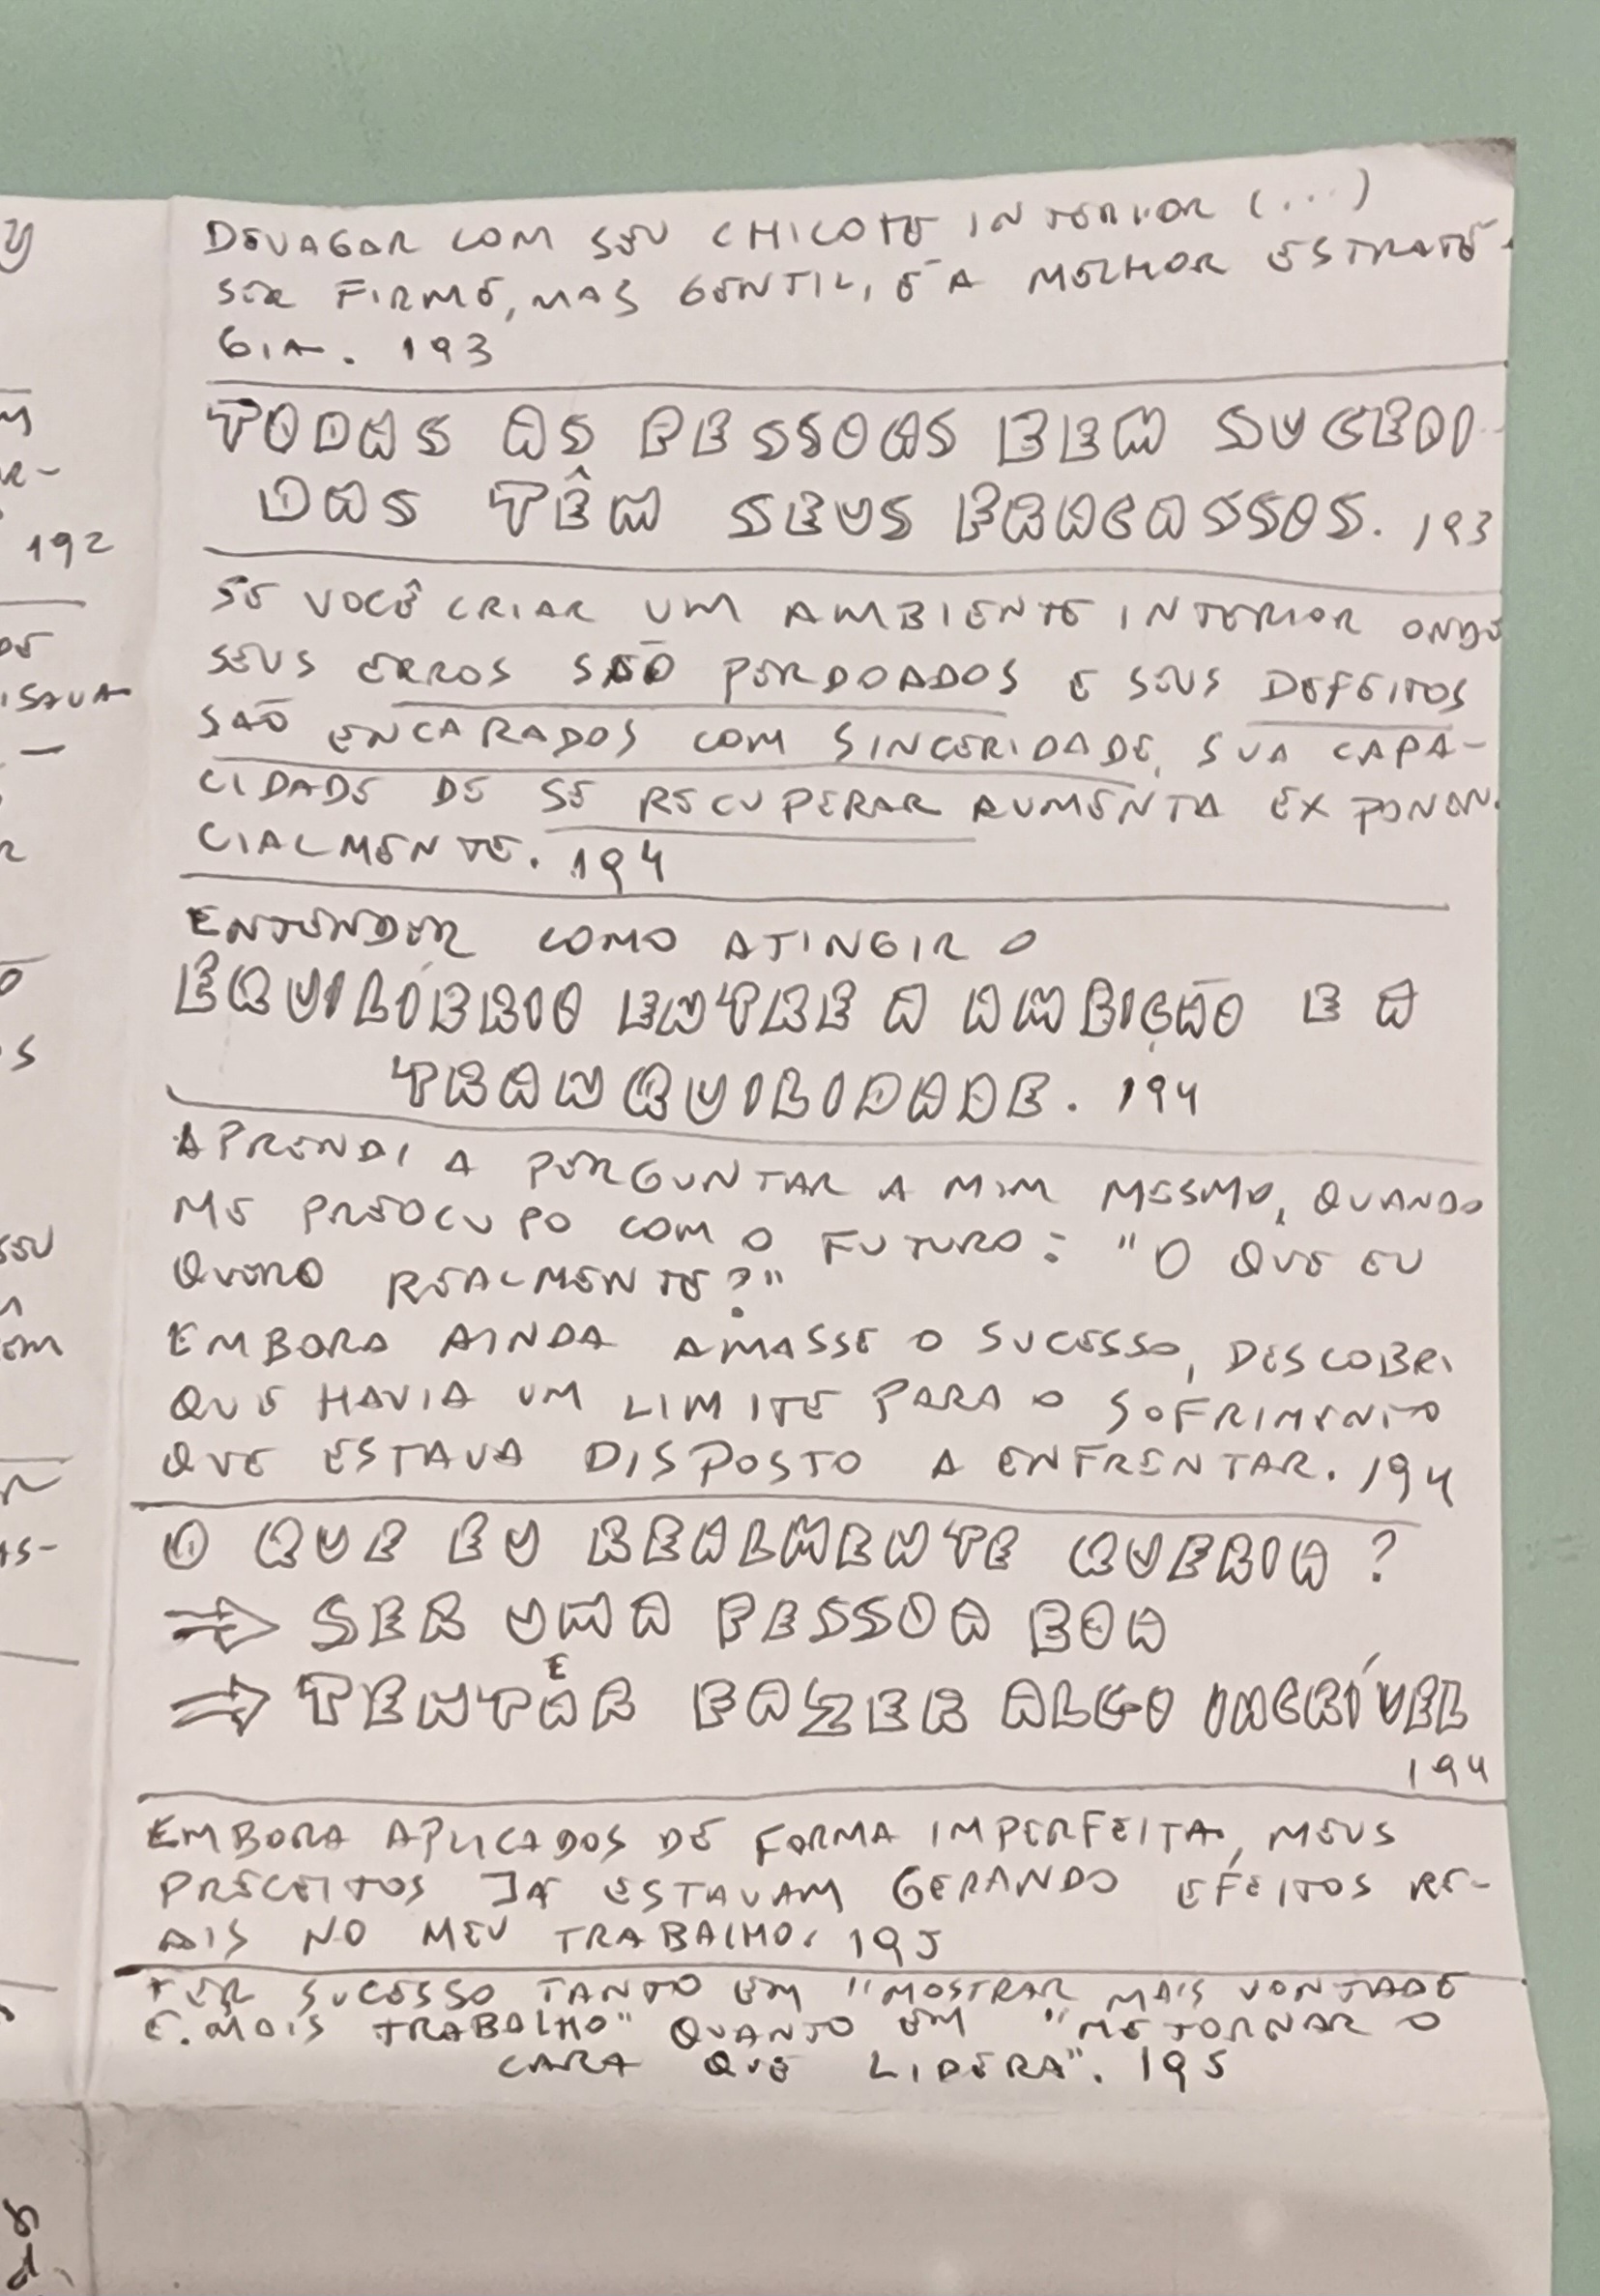 DEVAGAR COM SEU CHICOTE INTERIOR (...)
SER FIRME, MAS GENTIL, É A MELHOR ESTRATÉ-
GIA. 193
TODAS AS PESSOAS BEM SUCEDI-
DAS TÊM SEUS FRACASSOS. 193
SE VOCÊ CRIAR UM AMBIENTE INTERIOR ONDE
SEUS ERROS SÃO PERDOADOS E SEUS DEFEITOS
SÃO ENCARADOS COM SINCERIDADE, SUA CAPA-
CIDADE DE SE RECUPERAR AUMENTA EXPONEN-
CIALMENTE. 194
ENTENDER COMO ATINGIR O
EQUILÍBRIO ENTRE A AMBIÇÃO E A
TRANQUILIDADE. 194
APRENDI A PERGUNTAR A MIM MESMO, QUANDO
ME PREOCUPO COM O FUTURO: "O QUE EU
QUERO REALMENTE?"
EMBORA AINDA AMASSE O SUCESSO, DESCOBRI
QUE HAVIA UM LIMITE PARA O SOFRIMENTO
QUE ESTAVA DISPOSTO A ENFRENTAR. 194
O QUE EU REALMENTE QUERIA?
⇒ SER UMA PESSOA BOA
E
⇒ TENTAR FAZER ALGO INCRÍVEL
194
EMBORA APLICADOS DE FORMA IMPERFEITA, MEUS
PRECEITOS JÁ ESTAVAM GERANDO EFEITOS RE-
AIS NO MEU TRABALHO. 195
TER SUCESSO TANTO EM "MOSTRAR MAIS VONTADE
E MAIS TRABALHO" QUANTO EM "ME TORNAR O
CARA QUE LIDERA". 195
192